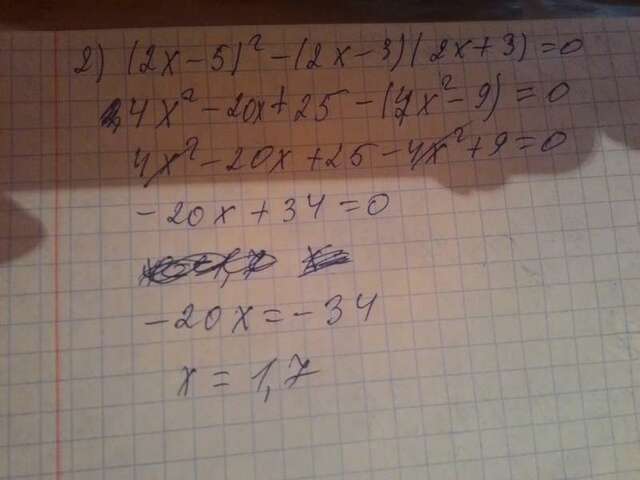 2) (2x-5)²-(2x-3)(2x+3)=0
4x²-20x+25-(4x²-9)=0
4x²-20x+25-4x²+9=0
-20x+34=0
-20x=-34
x=1,7